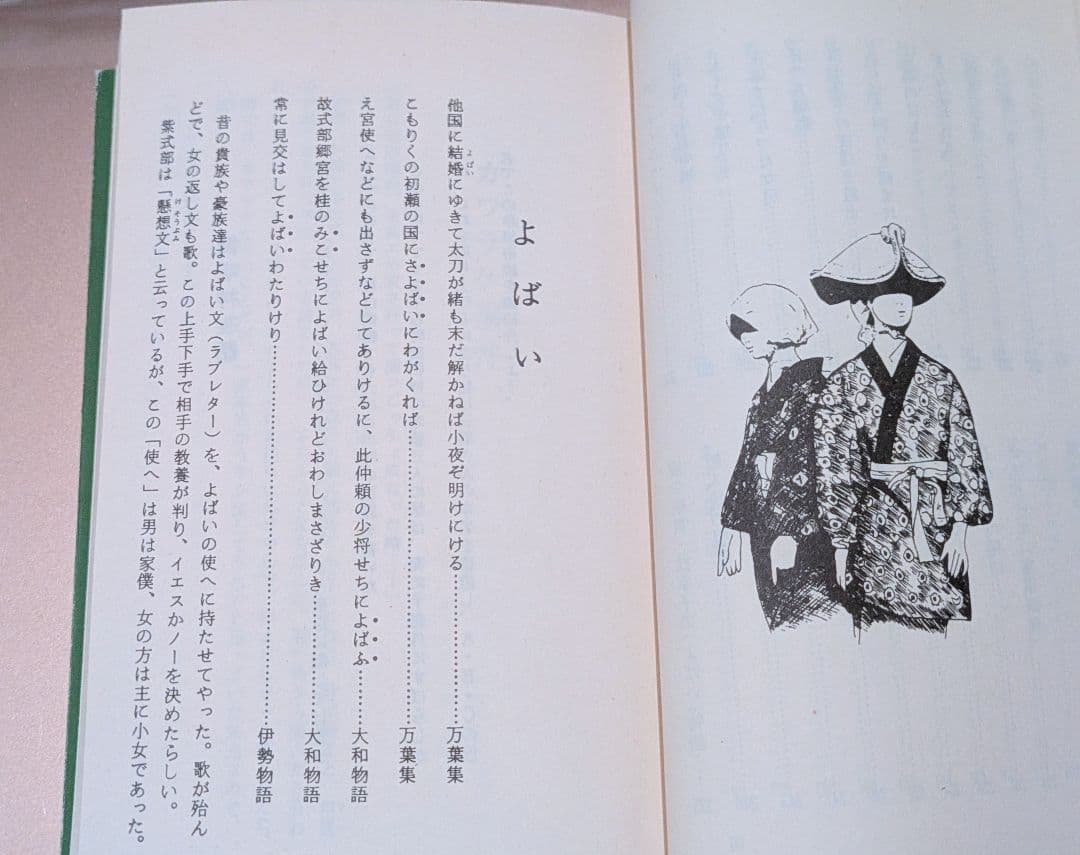 よばい
他国に結婚にゆきて太刀が緒も末だ解かねば小夜ぞ明けにける…………………万葉集
よばい
こもりくの初瀬の国にさよばいにわがくれば…………………………………万葉集
え宮使へなどにも出さずなどしてありけるに、此仲頼の少将せちによばふ…………大和物語
故式部郷宮を桂のみこせちによばい給ひけれどおわしまさざりき………………大和物語
常に見交はしてよばいわたりけり………………………………………………伊勢物語
昔の貴族や豪族達はよばい文(ラブレター)を、よばいの使へに持たせてやった。歌が殆ん
どで、女の返し文も歌。この上手下手で相手の教養が判り、イエスかノーを決めたらしい。
紫式部は「懸想文」と云っているが、この「使へ」は男は家僕、女の方は主に小女であった。
けそうぶみ